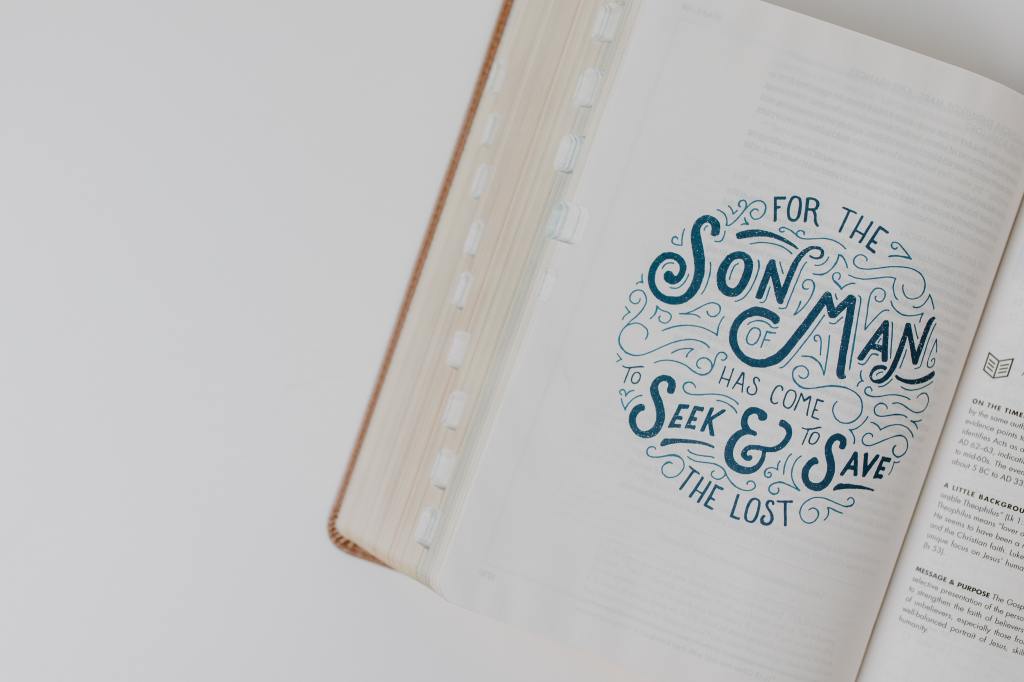 FOR THE
SON
OF MAN
HAS COME
TO SEEK & TO SAVE
THE LOST
ON THE TIME
by the same auth
evidence points t
identifies Acts as a
AD 62–63, indicati
to mid-60s. The eve
about 5 BC to AD 33
A LITTLE BACKGROU
urable Theophilus" (Lk 1
Theophilus means "lover o
He seems to have been a
and the Christian faith. Luke
unique focus on Jesus' huma
(ly 53).
MESSAGE & PURPOSE The Gosp
selective presentation of the perso
to strengthen the faith of believers
of unbelievers, especially those fro
well-balanced portrait of Jesus, skil
humanity.